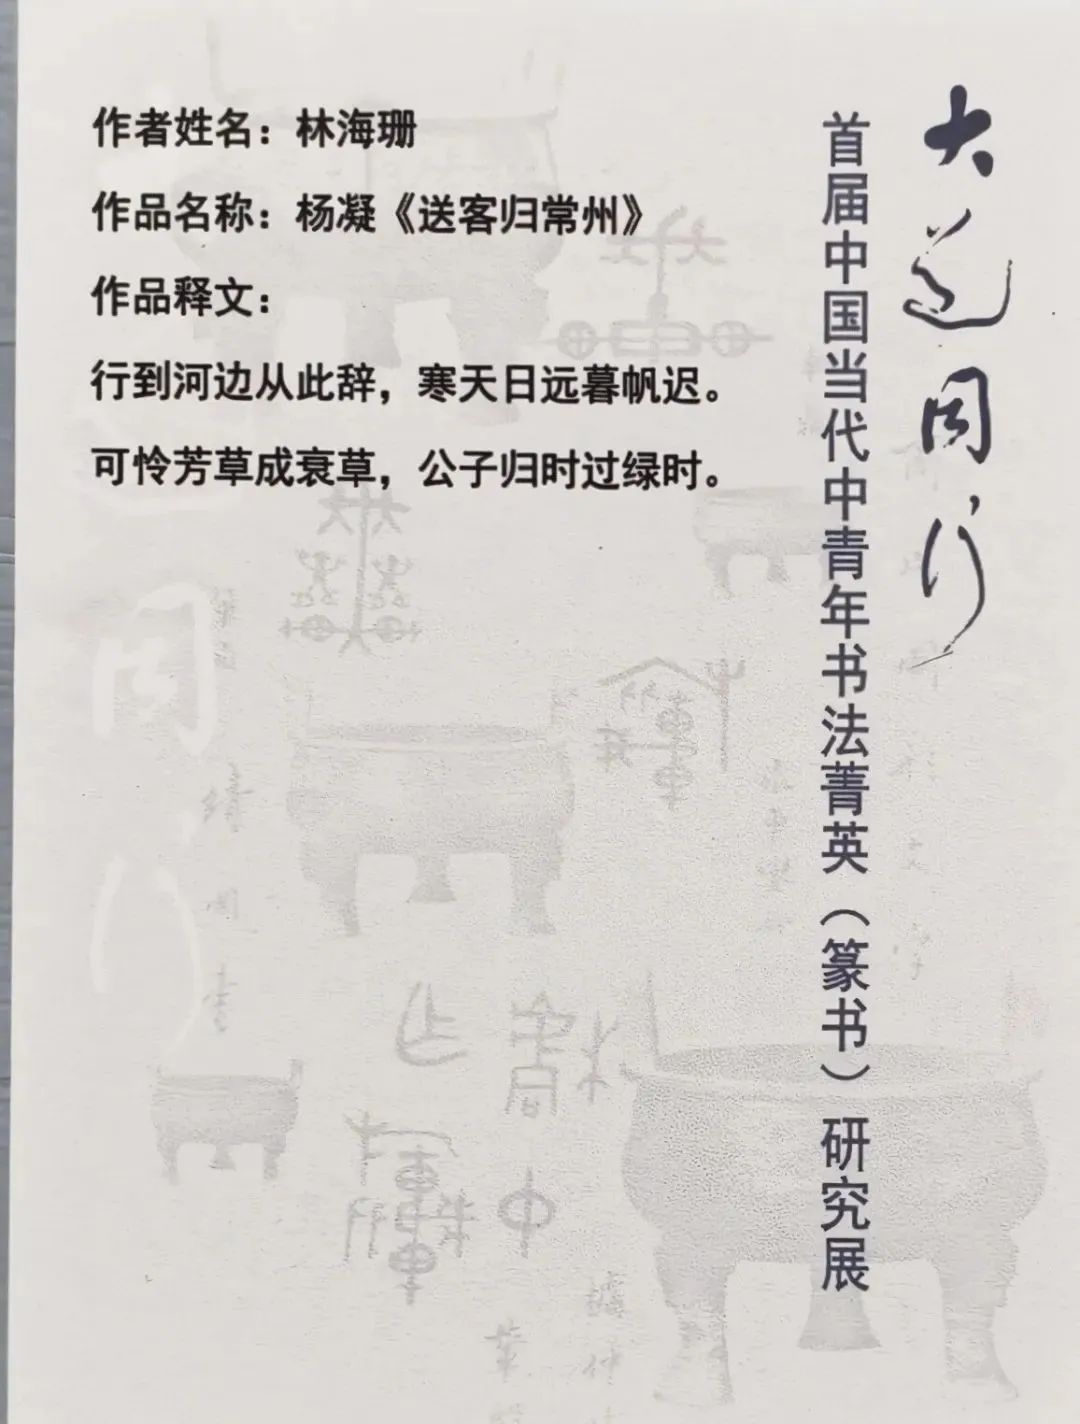 作者姓名：林海珊
作品名称：杨凝《送客归常州》
作品释文：
行到河边从此辞，寒天日远暮帆迟。
可怜芳草成衰草，公子归时过绿时。
大道同行
首届中国当代中青年书法菁英（篆书）研究展